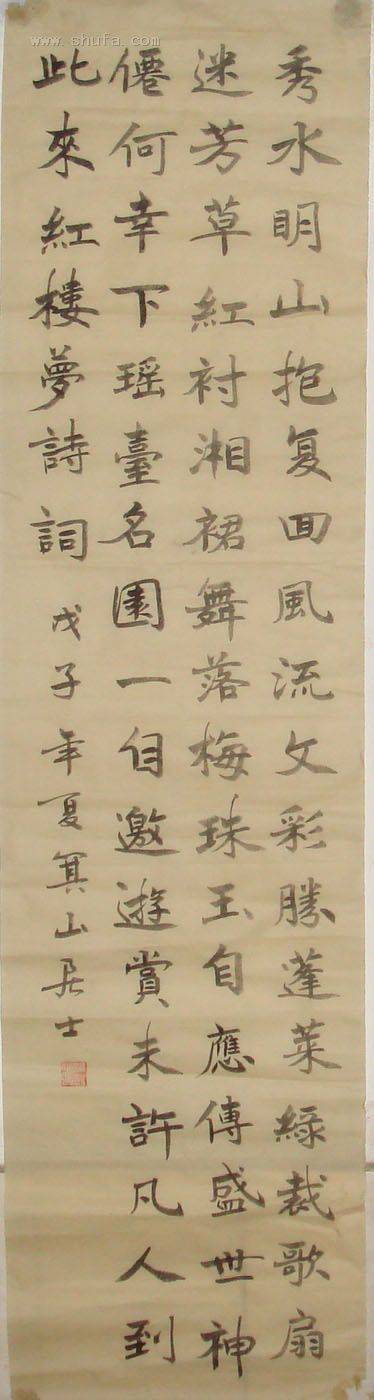 秀水明山抱复回風流文彩勝蓬萊綠裁歌扇
迷芳草紅衬湘裙舞落梅珠玉自應傳盛世神
僊何幸下瑶臺名園一自邀遊賞未許凡人到
此來紅樓夢詩詞
戊子年夏箕山居士
www.shufa.com